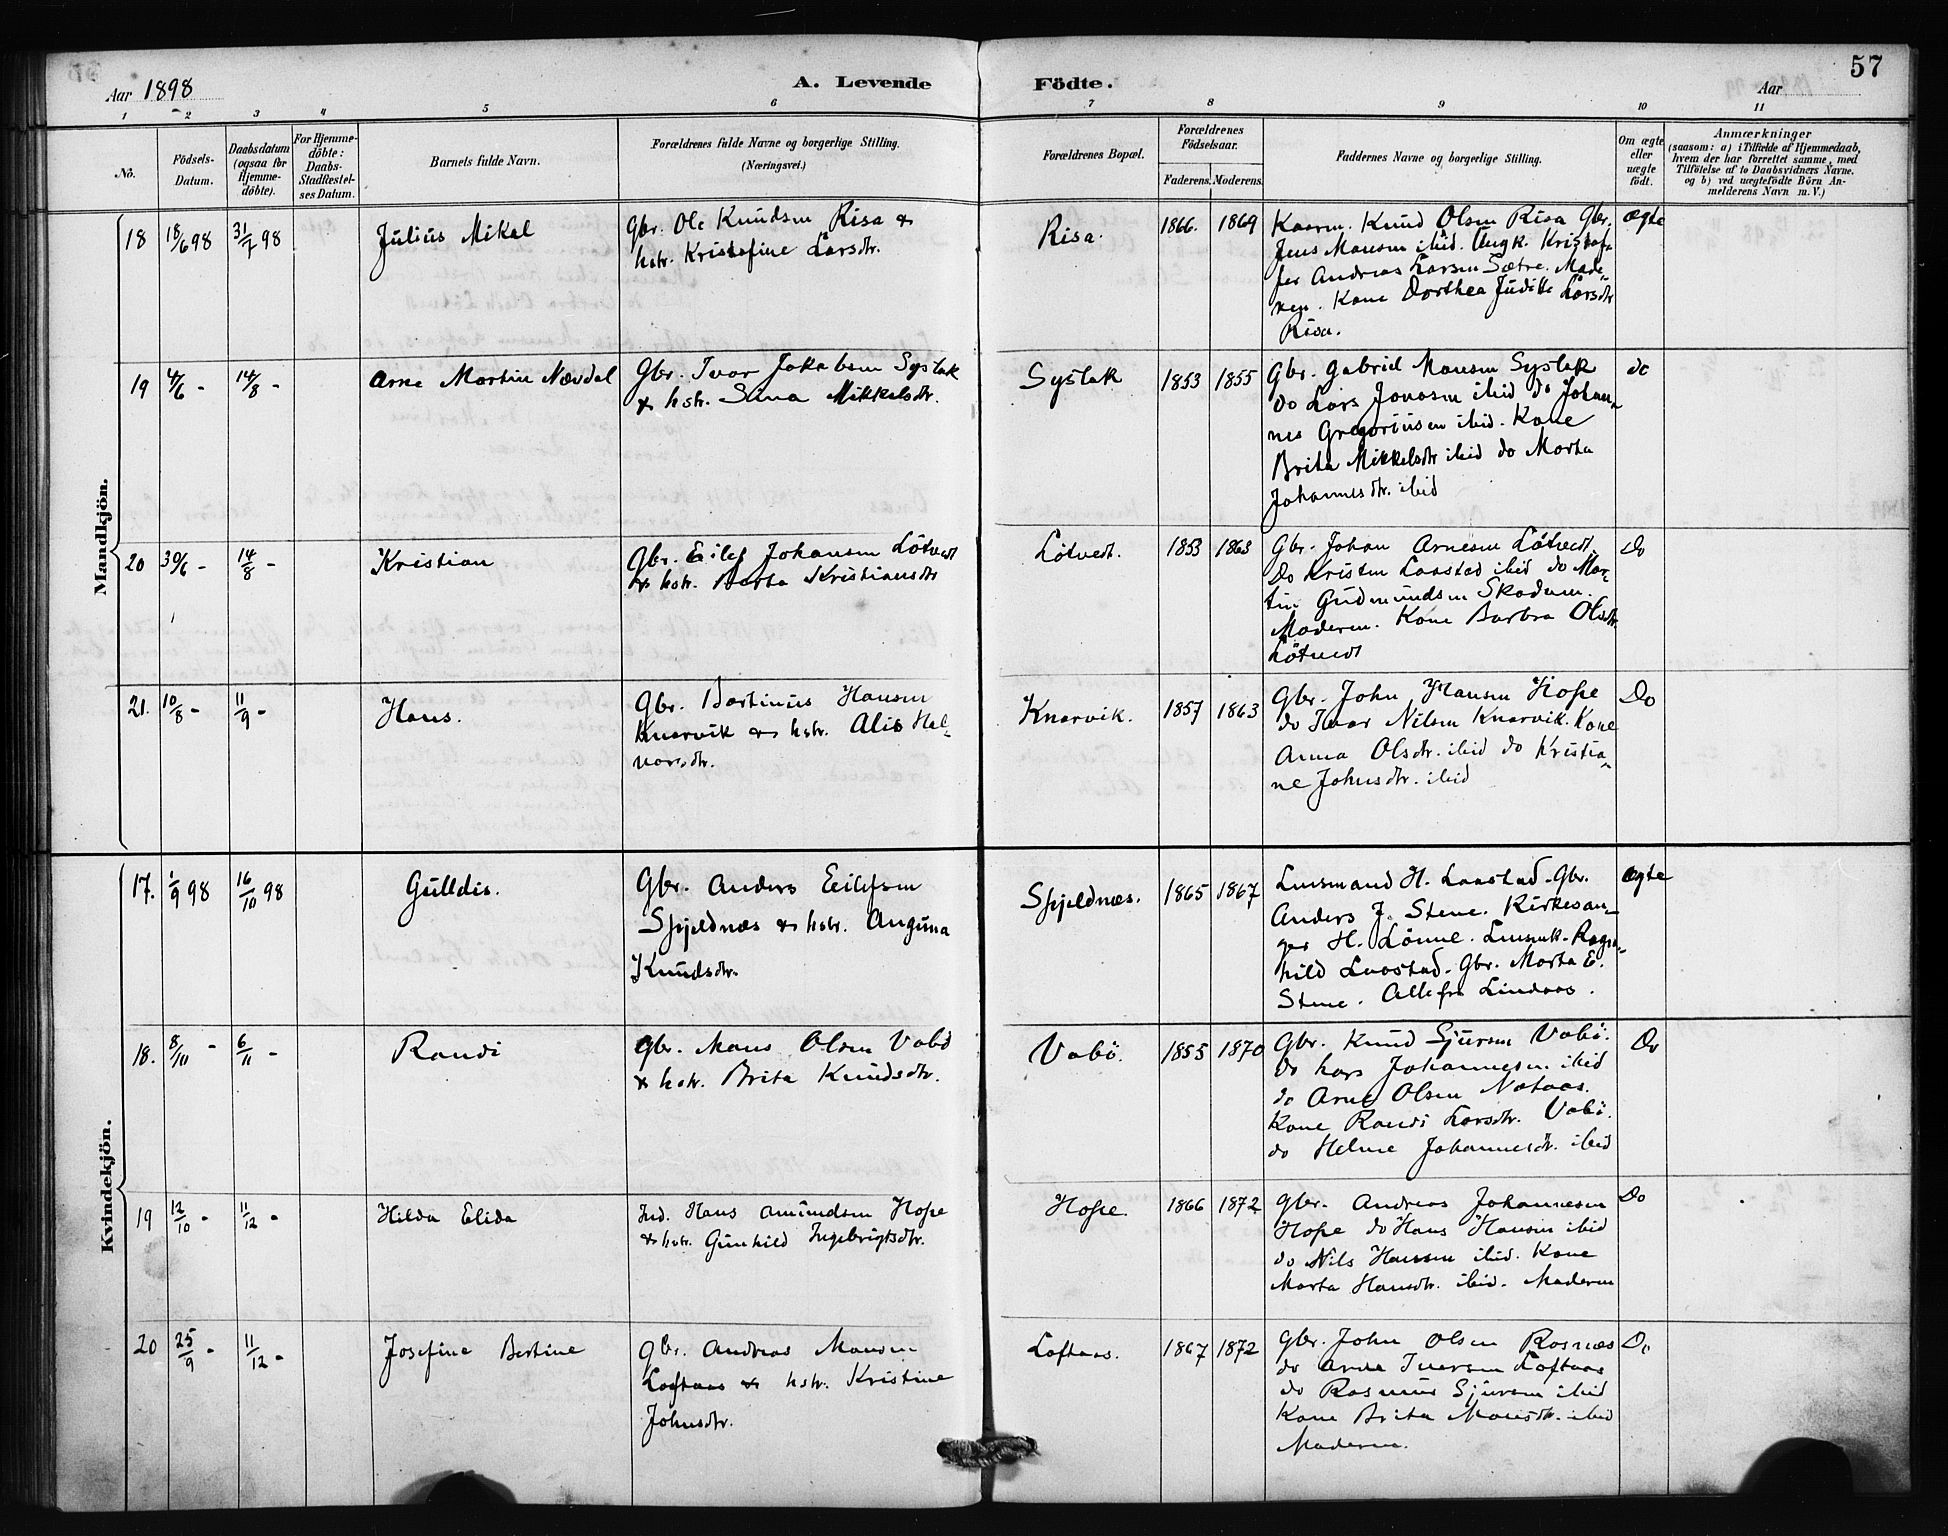 57
Aar 1898
A. Levende Födte.
Aar
1 2 3 4 5 6 7 8 9 10 11
No.
Födsels-Datum.
Daabsdatum (ogsaa for Hjemme-döbte).
For Hjemme-döbte: Daabs-Stadfæstel-ses Datum.
Barnets fulde Navn.
Forældrenes fulde Navne og borgerlige Stilling.
(Næringsvei.)
Forældrenes Bopæl.
Forældrenes Födselsaar.
Faderens. Moderens.
Faddernes Navne og borgerlige Stilling.
Om ægte eller uægte födt.
Anmærkninger
(saasom: a) i Tilfælde af Hjemmedaab,
hvem der har forrettet samme, med
Tilföielse af to Daabsvidners Navne.
og b) ved uægtefödte Börn An-
melderens Navn m. V.)
Mandkjön.
18 18/6 98 31/7 98 Julius Mikal
Gbr. Ole Knudsen Risa &
hstr. Kristofine Larsdtr.
Risa. 1866. 1869
Kaarm. Knud Olsen Risa Gbr.
Jens Monsen ibid. Ungk. Kristof-
fer Andreas Larsen Sætre. Mode-
ren. Kone Dorthea Juditte Larsdtr
Risa.
ægte
19 4/6 - 14/8 - Arne Martin Nævdal
Gbr. Ivar Jakobsen Syslak
& hstr. Sina Mikkelsdtr.
Syslak 1853 1855
Gbr. Gabriel Monsen Syslak
do Lars Jonasen ibid do Johan-
nes Gregoriusen ibid. Kone
Brita Mikkelsdtr ibid do Marta
Johannesdtr. ibid
do
20 30/6 - 14/8 - Kristian
Gbr. Eilef Johansen Lötvedt
& hstr. Berta Kristiansdtr
Lötvedt. 1853 1863
Gbr. Johan Arnesen Lötvedt.
Do Kristen Laastad ibid do Mar-
tin Gudmundsen Skodven.
Moderen. Kone Barbra Olsdtr.
Lötvedt
Do
21. 10/8 - 11/9 - Hans.
Gbr. Bertinus Hansen
Knarvik & hstr. Alis Hal-
vorsdtr.
Knarvik. 1857 1863
Gbr. John Hansen Hope
do Ivar Nilsen Knarvik. Kone
Anna Olsdtr. ibid do Kristia-
ne Johnsdtr. ibid
Do
Kvindekjön.
17. 1/9 98 16/10 98 Gulldis.
Gbr. Anders Eilefsen
Spjeldnæs & hstr. Anguna
Knudsdtr.
Spjeldnæs. 1865 1867
Lensmand H. Laastad. Gbr.
Anders J. Stene. Kirkesan-
ger H. Lönne. Lensmk. Ragn-
hild Laastad. Gbr. Marta E.
Stene. Alle fra Lindaas.
ægte
18. 8/10 - 6/11 - Randi
Gbr. Mons Olsen Vabö
& hstr. Brita Knudsdtr.
Vabö. 1855 1870
Gbr. Knud Sjursen Vabö.
do Lars Johannesen ibid
do Arne Olsen Nataas.
Kone Randi Larsdtr. Vabö.
do Helene Johannesdtr. ibid
Do
19 12/10 - 11/12 - Hilda Elida
Ind. Hans Amundsen Hope
& hstr. Gunhild Ingebrigtsdtr.
Hope. 1866 1872
Gbr. Andreas Johannesen
Hope do Hans Hansen ibid
do Nils Hansen ibid. Kone
Marta Hansdtr. ibid. Moderen
Do
20 25/9 - 11/12 - Josefine Bertine
Gbr. Andreas Monsen
Loftaas & hstr. Kristine
Johnsdtr.
Loftaas. 1867 1872
Gbr. John Olsen Rosnæs
do Arne Iversen Loftaas
do Rasmus Sjursen ibid
Kone Brita Monsdtr. ibid
Moderen.
Do